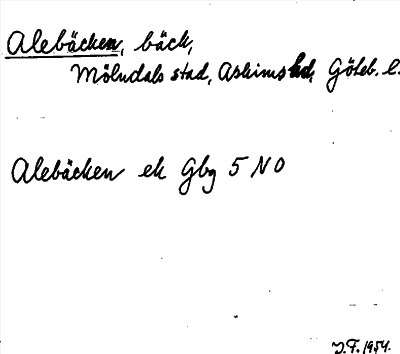 Alebäcken, bäck,
Mölndals stad, Askims hd, Göteb. l.
Alebäcken ek Gbg 5 NO
J.F. 1954.